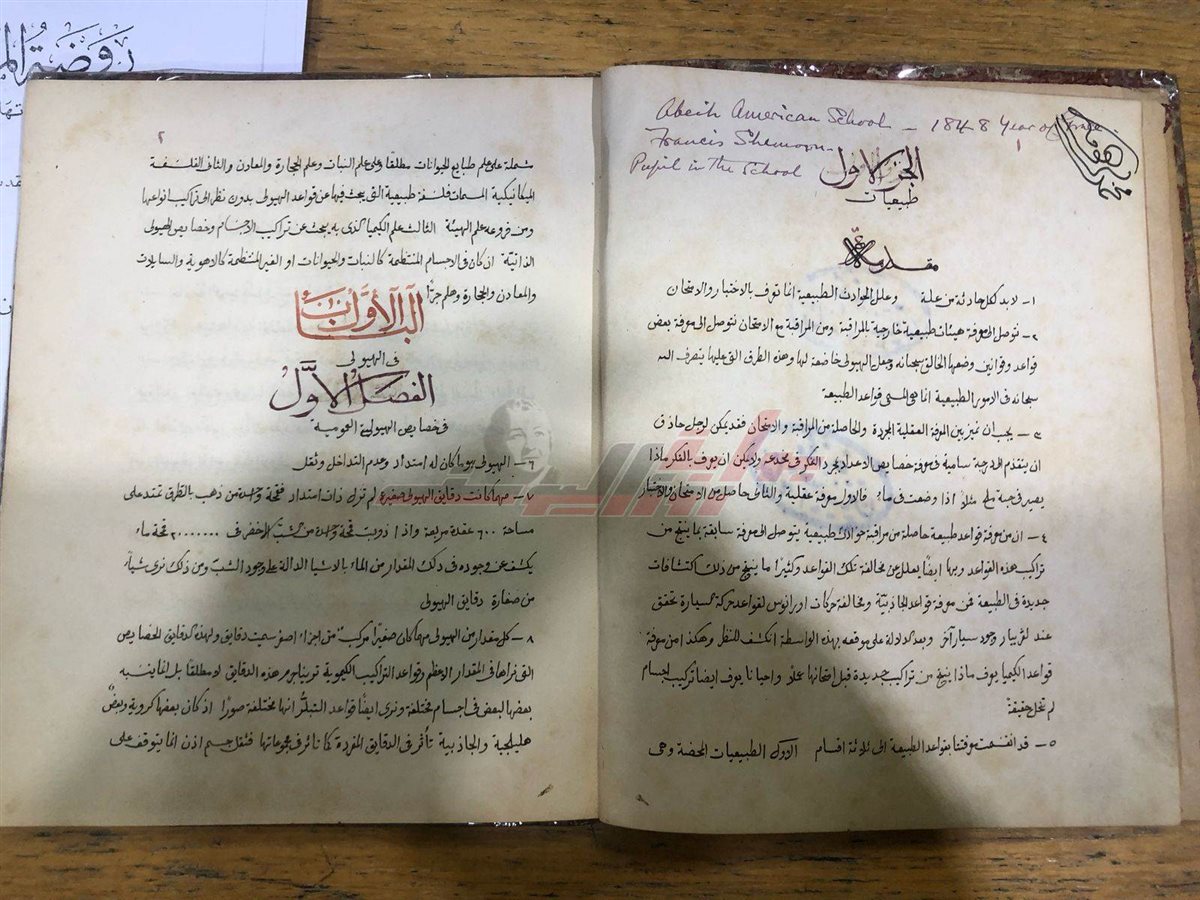 روضة
Abeih American School – 1848 Year of
Francis Shemoon
Pupil in the School
١
الجزء الاول
طبيعيات
مقدمة
١- لا بد لكل حادثة من علة وعلل الحوادث الطبيعية انما تعرف بالاختبار والامتحان
٢- نتوصل الى معرفة هيئات طبيعية خارجية بالمراقبة ومن المراقبة مع الامتحان نتوصل الى معرفة بعض
قواعد وقوانين وضعها الخالق سبحانه وجعل الهيولى خاضعة لها وهذه الطرق التي عليها يتصرف الله
سبحانه في الامور الطبيعية انما هي المسمى قواعد الطبيعة
٣- يجب ان نميز بين المعرفة العقلية المجردة والحاصلة من المراقبة والامتحان فقد يمكن لرجل حاذق
ان يتقدم الى درجة سامية في معرفة خصايص الاعداد بمجرد الفكر في مخدعه ولا يمكن ان يعرف بالفكر ماذا
يصير في حبة ملح مثلاً اذا وضعت في ماء فالاول معرفة عقلية والثاني حاصل من الامتحان والاختبار
٤- ان معرفة قواعد طبيعة حاصلة من مراقبة حوادث طبيعية يتوصل الى معرفة سابقة بما ينتج من
تراكيب هذه القواعد وبها ايضاً يعلل من مخالفة تلك القواعد وكثيرًا ما ينتج من ذلك اكتشافات
جديدة في الطبيعة فمن معرفة قواعد الجاذبية ومخالفة حركات اورانوس لقواعد حركة السيارة تحقق
عند لڤريار وجود سيار آخر وبعد الدلالة على موقعه بهذه الواسطة انكشف للنظر وهكذا من معرفة
قواعد الكيميا يعرف ماذا ينتج من تراكيب جديدة قبل امتحانها عملاً واحيانا يعرف ايضا تركيب اجسام
لم تحل حقيقة
٥- قد انقسمت معرفتنا بقواعد الطبيعة الى ثلاثة اقسام الاول الطبيعيات المحضة وهي
٢
شملة على علم طبايع الحيوانات مطلقا وعلى علم النبات وعلم الحجارة والمعادن والثاني الفلسفة
الميكانيكية المسمات فلسفة طبيعية التي يبحث فيها عن قواعد الهيولى بدون نظر الى تراكيب انواعها
ومن فروعه علم الهيئة الثالث علم الكيميا الذي به يبحث عن تراكيب الاجسام وخصايص الهيولى
الذاتية ان كان في الاجسام المنتظمة كالنبات والحيوانات او الغير المنتظمة كالاهوية والسايلات
والمعادن والحجارة وهلم جرًا
الباب الأول
في الهيولى
الفصل الأول
في خصايص الهيولية العمومية
٦- الهيولى هو ما كان له امتداد وعدم التداخل وثقل
٧- مهما كانت دقايق الهيولى صغيرة لم تزل ذات امتداد فقمحة واحدة من ذهب بالطرق تمتد على
مساحة ٦٠٠ عقدة مربعة واذا ذوبت قمحة واحدة من شب الاخضر في قمحة ماء
يكشف عن وجوده في ذلك المقدار من الماء بالاشيا الدالة على وجود الشب ومن ذلك نرى شيئاً
من صغارة دقايق الهيولى
٨- كل مقدار من الهيولى مهما كان صغيرًا مركب من اجزاء اصغر سميت دقايق ولهذه الدقايق الخصايص
التي نراها في المقدار الاعظم وقواعد التراكيب الكيموية ترينا من هذه الدقايق لا مطلقاً بل بالنسبة
بعضها لبعض في اجسام مختلفة ونرى ايضاً قواعد التبلر انها مختلفة صورًا اذ كان بعضها كروية وبعضٌ
هليلجية والجاذبية تأثر في الدقايق المفردة كما تأثر في مجموعاتها فثقل جسم اذن انما يتوقف على